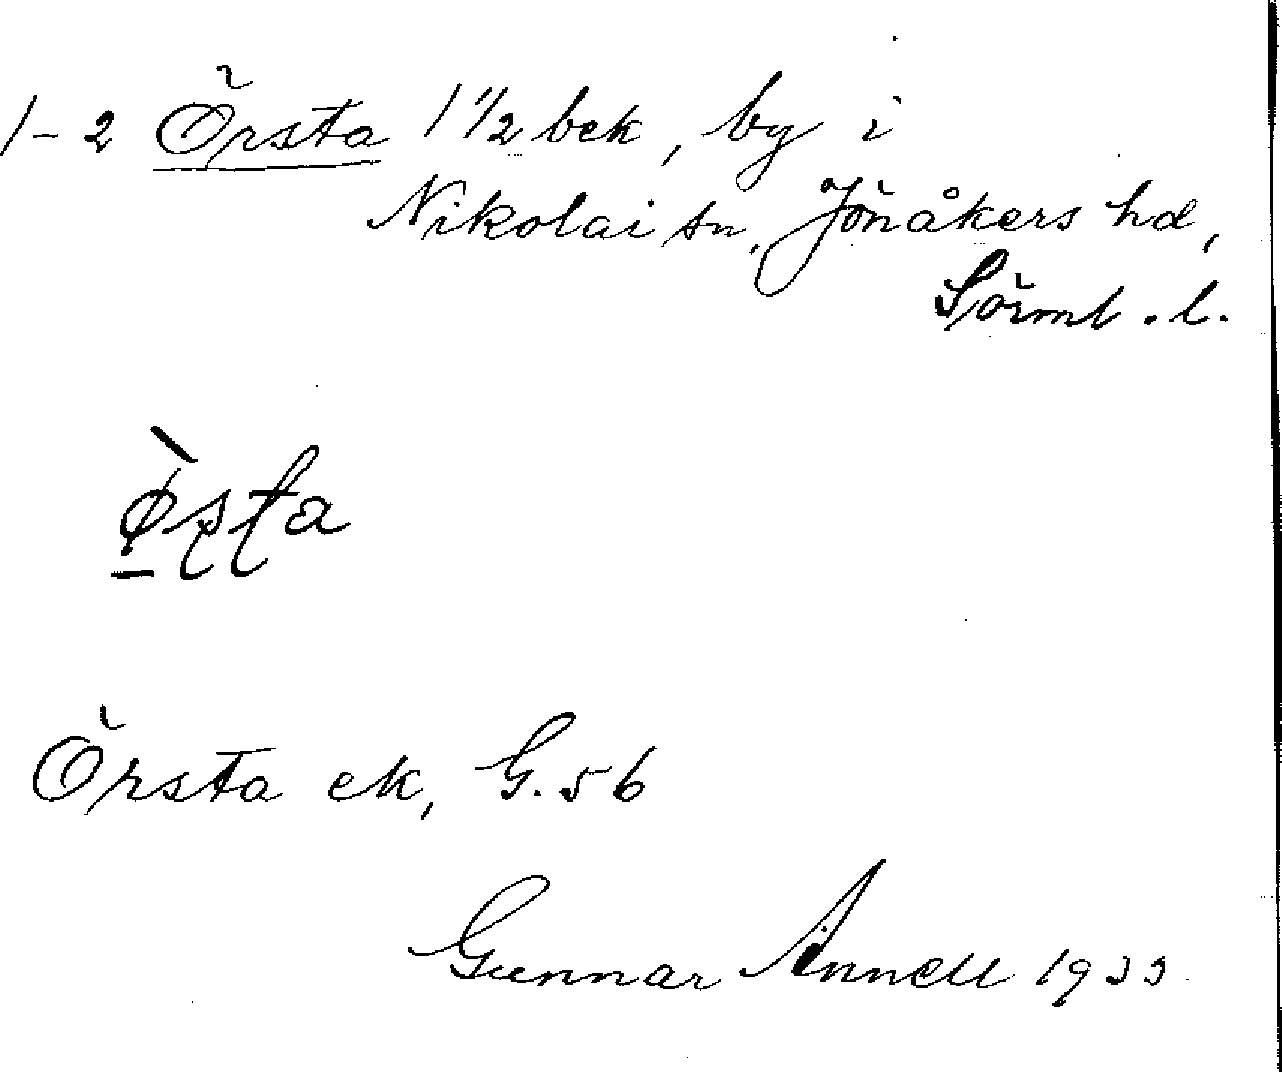 1-2 Örsta 1 1/2 bek, by i
Nikolai sn, Jönåkers hd,
Sörml. l.
Örsta ek, G. 56
Gunnar Annell 1933